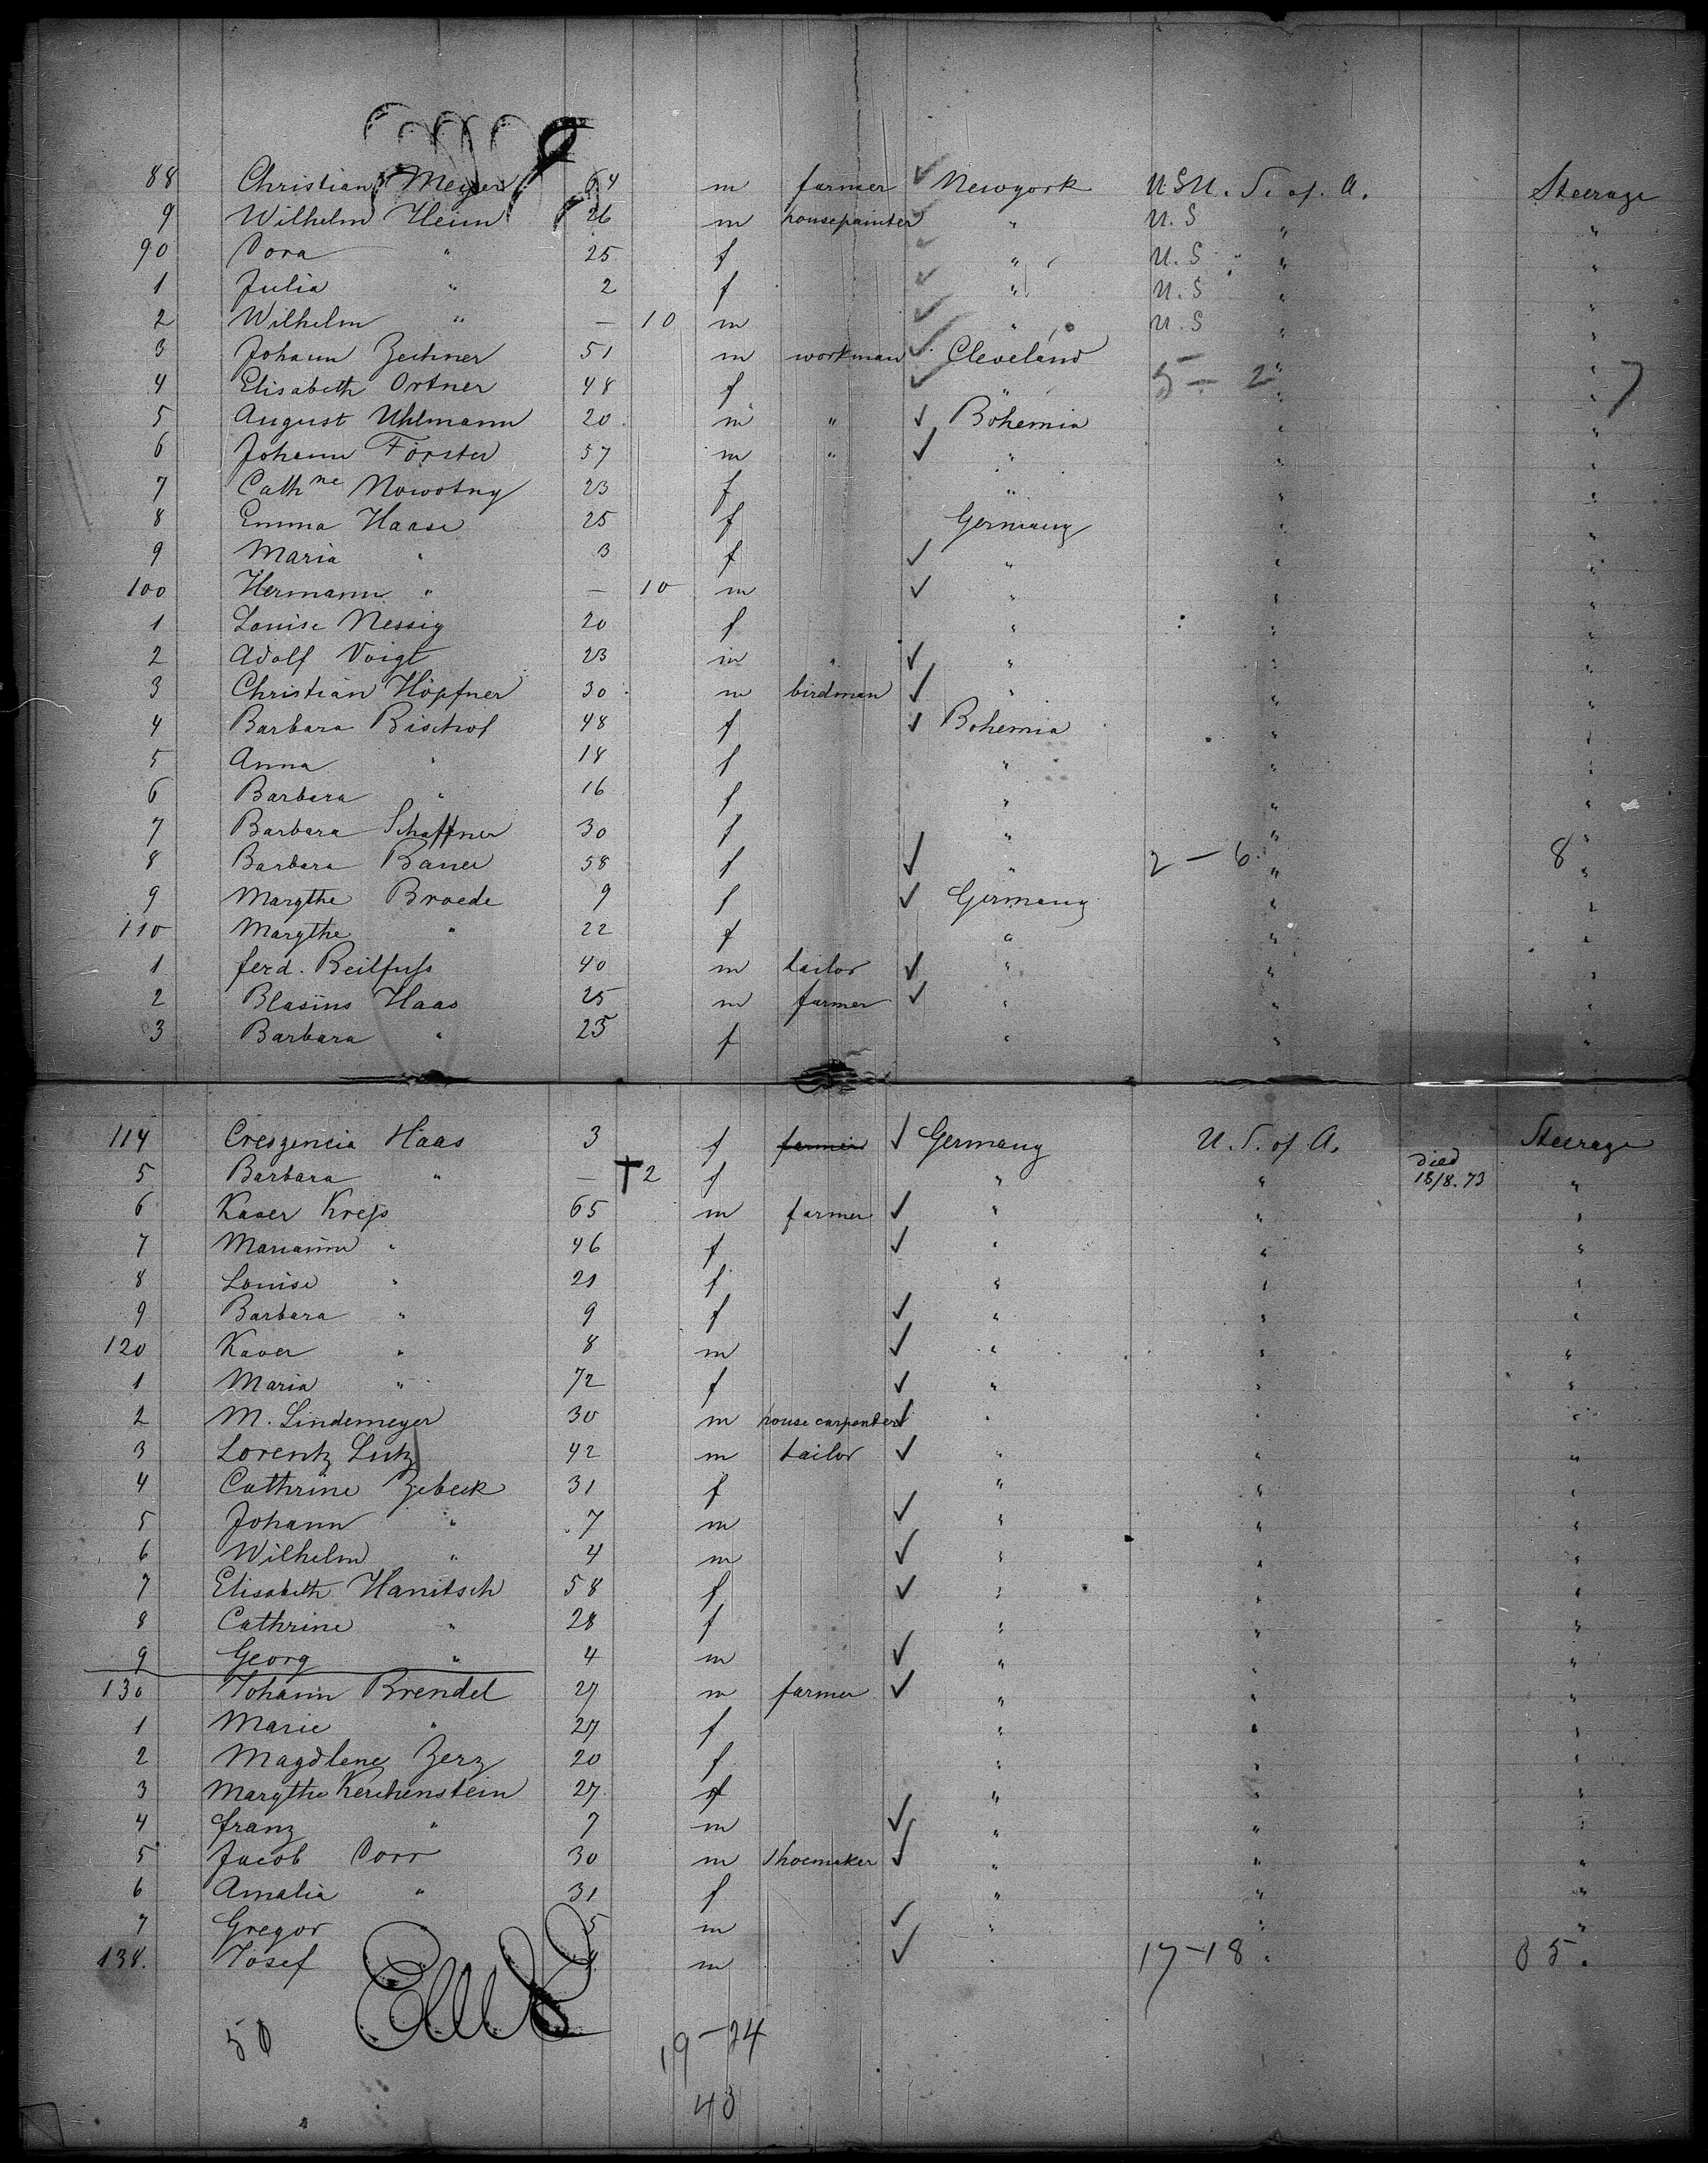 88 Christian Meyer 64 m farmer ✓ Newyork U.S U. S. of. A. Steerage
9 Wilhelm Heim 26 m housepainter ✓ " U. S " "
90 Dora " 25 f ✓ " U. S " "
1 Julia " 2 f ✓ " U. S " "
2 Wilhelm " — 10 m ✓ " U. S " "
3 Johann Zechner 51 m workman ✓ Cleveland " "
4 Elisabeth Ortner 48 f ✓ " 5 — 2 " " 7
5 August Uhlmann 20 m " ✓ Bohemia " "
6 Johann Förster 57 m " ✓ " " "
7 Cathne Nowotny 23 f " " "
8 Emma Haase 25 f Germany " "
9 Maria " 3 f ✓ " " "
100 Hermann " — 10 m ✓ " " "
1 Louise Nessig 20 f " " "
2 Adolf Voigt 23 m " ✓ " " "
3 Christian Höpfner 30 m birdman ✓ " " "
4 Barbara Bischof 48 f ✓ Bohemia " "
5 Anna " 18 f " " "
6 Barbara " 16 f " " "
7 Barbara Schaffner 30 f " " "
8 Barbara Bauer 58 f ✓ " 2 — 6 " 8 "
9 Margthe Broede 9 f ✓ Germany " "
110 Margthe " 22 f " " "
1 ferd. Beilfuss 40 m tailor ✓ " " "
2 Blasius Haas 25 m farmer ✓ " " "
3 Barbara " 25 f " " "
114 Creszencia Haas 3 f farmer ✓ Germany U. S. of A. Steerage
5 Barbara " — † 2 f " " Died 18/8. 73 "
6 Xaver Kreß 65 m farmer ✓ " " "
7 Marianne " 46 f ✓ " " "
8 Louise " 21 f " " "
9 Barbara " 9 f ✓ " " "
120 Xaver " 8 m ✓ " " "
1 Maria " 72 f ✓ " " "
2 M. Lindemeyer 30 m house carpenter ✓ " " "
3 Lorentz Lutz 42 m tailor ✓ " " "
4 Cathrine Zebeck 31 f " " "
5 Johann " 7 m ✓ " " "
6 Wilhelm " 4 m ✓ " " "
7 Elisabeth Hanitsch 58 f ✓ " " "
8 Cathrine " 28 f " " "
9 Georg " 4 m ✓ " " "
130 Johann Brendel 27 m farmer ✓ " " "
1 Marie " 27 f " " "
2 Magdlene Zerz 20 f " " "
3 Margthe Kerchenstein 27 f " " "
4 franz " 7 m ✓ " " "
5 Jacob Dorr 30 m shoemaker ✓ " " "
6 Amalia " 31 f " " "
7 Gregor " 5 m ✓ " " "
138. Josef m ✓ " 17-18 " 35 "
50 19-24
43